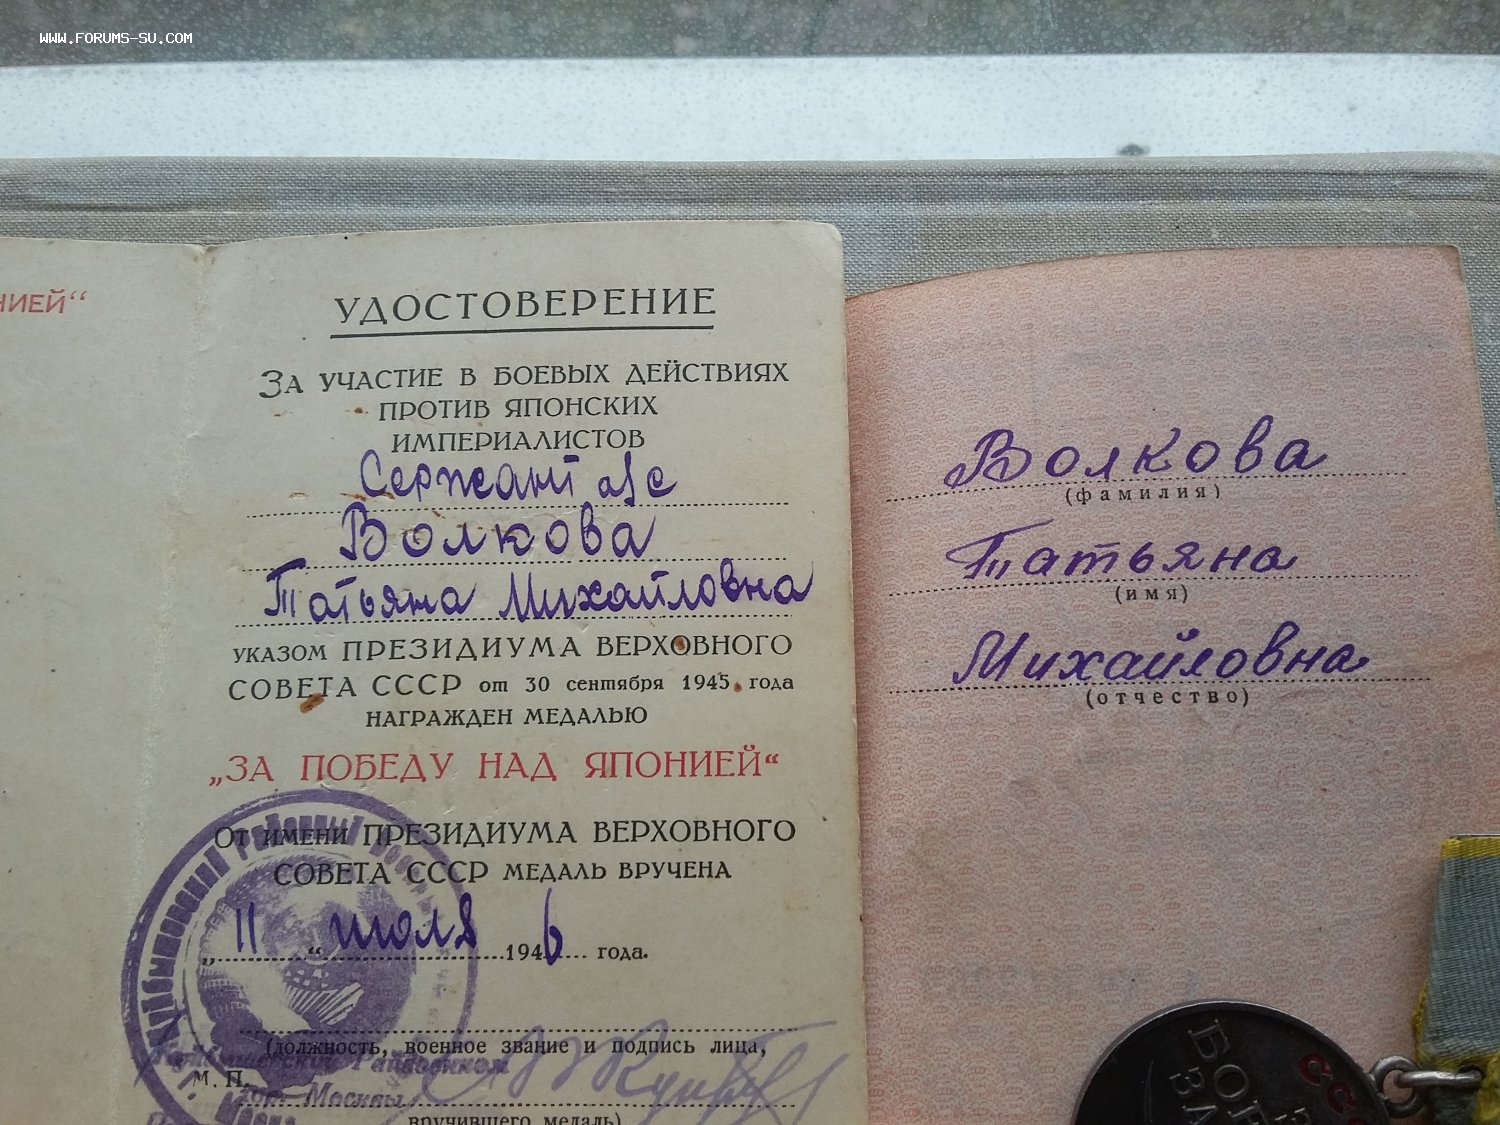 WWW.FORUMS-SU.COM
НИЕЙ“
УДОСТОВЕРЕНИЕ
ЗА УЧАСТИЕ В БОЕВЫХ ДЕЙСТВИЯХ
ПРОТИВ ЯПОНСКИХ
ИМПЕРИАЛИСТОВ
Сержант а/с
Волкова
Татьяна Михайловна
УКАЗОМ ПРЕЗИДИУМА ВЕРХОВНОГО
СОВЕТА СССР от 30 сентября 1945 года
НАГРАЖДЕН МЕДАЛЬЮ
„ЗА ПОБЕДУ НАД ЯПОНИЕЙ“
ОТ ИМЕНИ ПРЕЗИДИУМА ВЕРХОВНОГО
СОВЕТА СССР МЕДАЛЬ ВРУЧЕНА
„11“ июля 1946 года.
(должность, военное звание и подпись лица,
М. П.
вручившего медаль)
Куйбышевский Районный
Куйбышевский Райвоенком
гор. Москвы
Волкова
(фамилия)
Татьяна
(имя)
Михайловна
(отчество)
БОЕ
ЗА
СССР